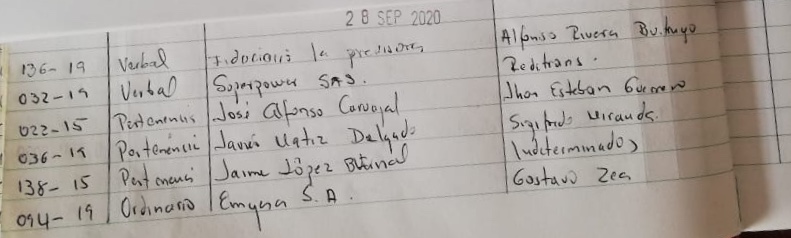 28 SEP 2020
136-19 Verbal Fiduciaria la previsora Alfonso Rivera Buitrago
032-19 Verbal Soperpower SAS. Reditrans.
022-15 Pertenencia José Alfonso Carvajal Jhon Esteban Guerrero
036-19 Pertenencia Javier Matiz Delgado Sigifredo Miranda.
138-15 Pertenencia Jaime López Indeterminados
094-19 Ordinario Emgesa S.A. Gustavo Zea